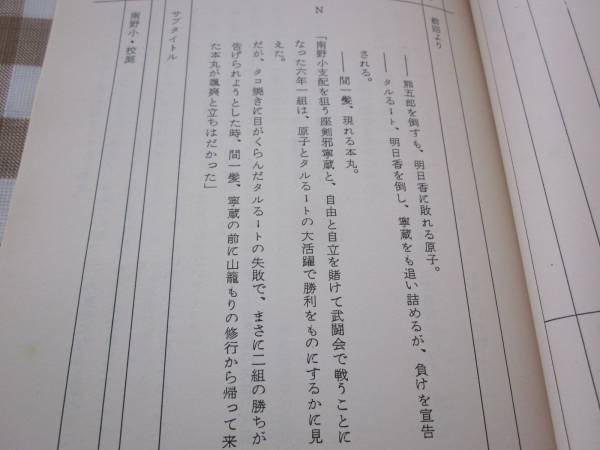 前回より
――熊五郎を倒すも、明日香に敗れる原子。
――タルるート、明日香を倒し、寧蔵をも追い詰めるが、負けを宣告
される。
――間一髪、現れる本丸。
N
「南野小支配を狙う座剣邪寧蔵と、自由と自立を賭けて武闘会で戦うことに
なった六年一組は、原子とタルるートの大活躍で勝利をものにするかに見
えた。
だが、タコ焼きに目がくらんだタルるートの失敗で、まさに二組の勝ちが
告げられようとした時、間一髪、寧蔵の前に山籠もりの修行から帰って来
た本丸が颯爽と立ちはだかった」
サブタイトル
南野小・校庭